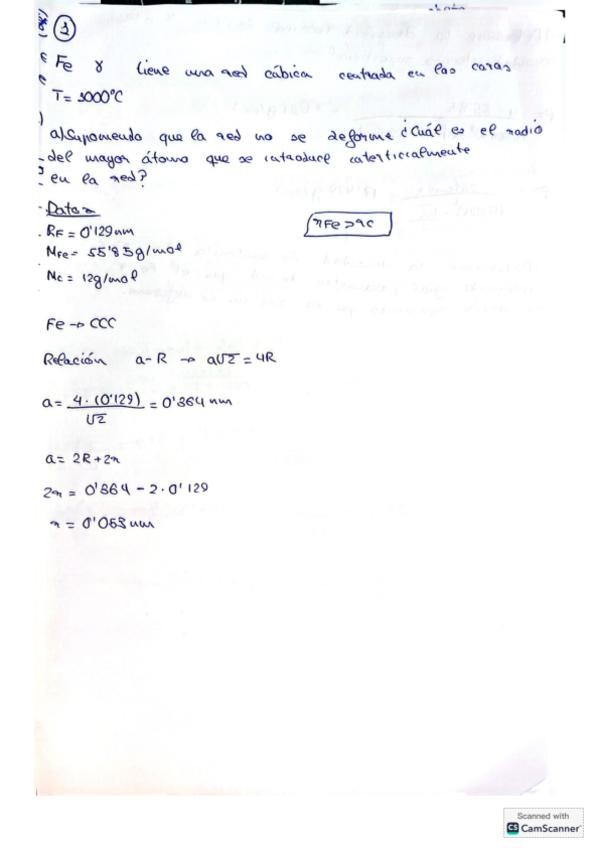 1
Fe γ tiene una red cúbica centrada en las caras
T = 1000°C
a) Suponiendo que la red no se deforme ¿Cuál es el radio
del mayor átomo que se introduce intersticialmente
en la red?
Datos
RF = 0'129 nm
rFe > rc
MFe = 55'85 g/mol
Mc = 12 g/mol
Fe → CCC
Relación a-R → a√2 = 4R
a = 4 · (0'129) / √2 = 0'364 nm
a = 2R + 2r
2r = 0'364 - 2 · 0'129
r = 0'053 nm
Scanned with
CS CamScanner